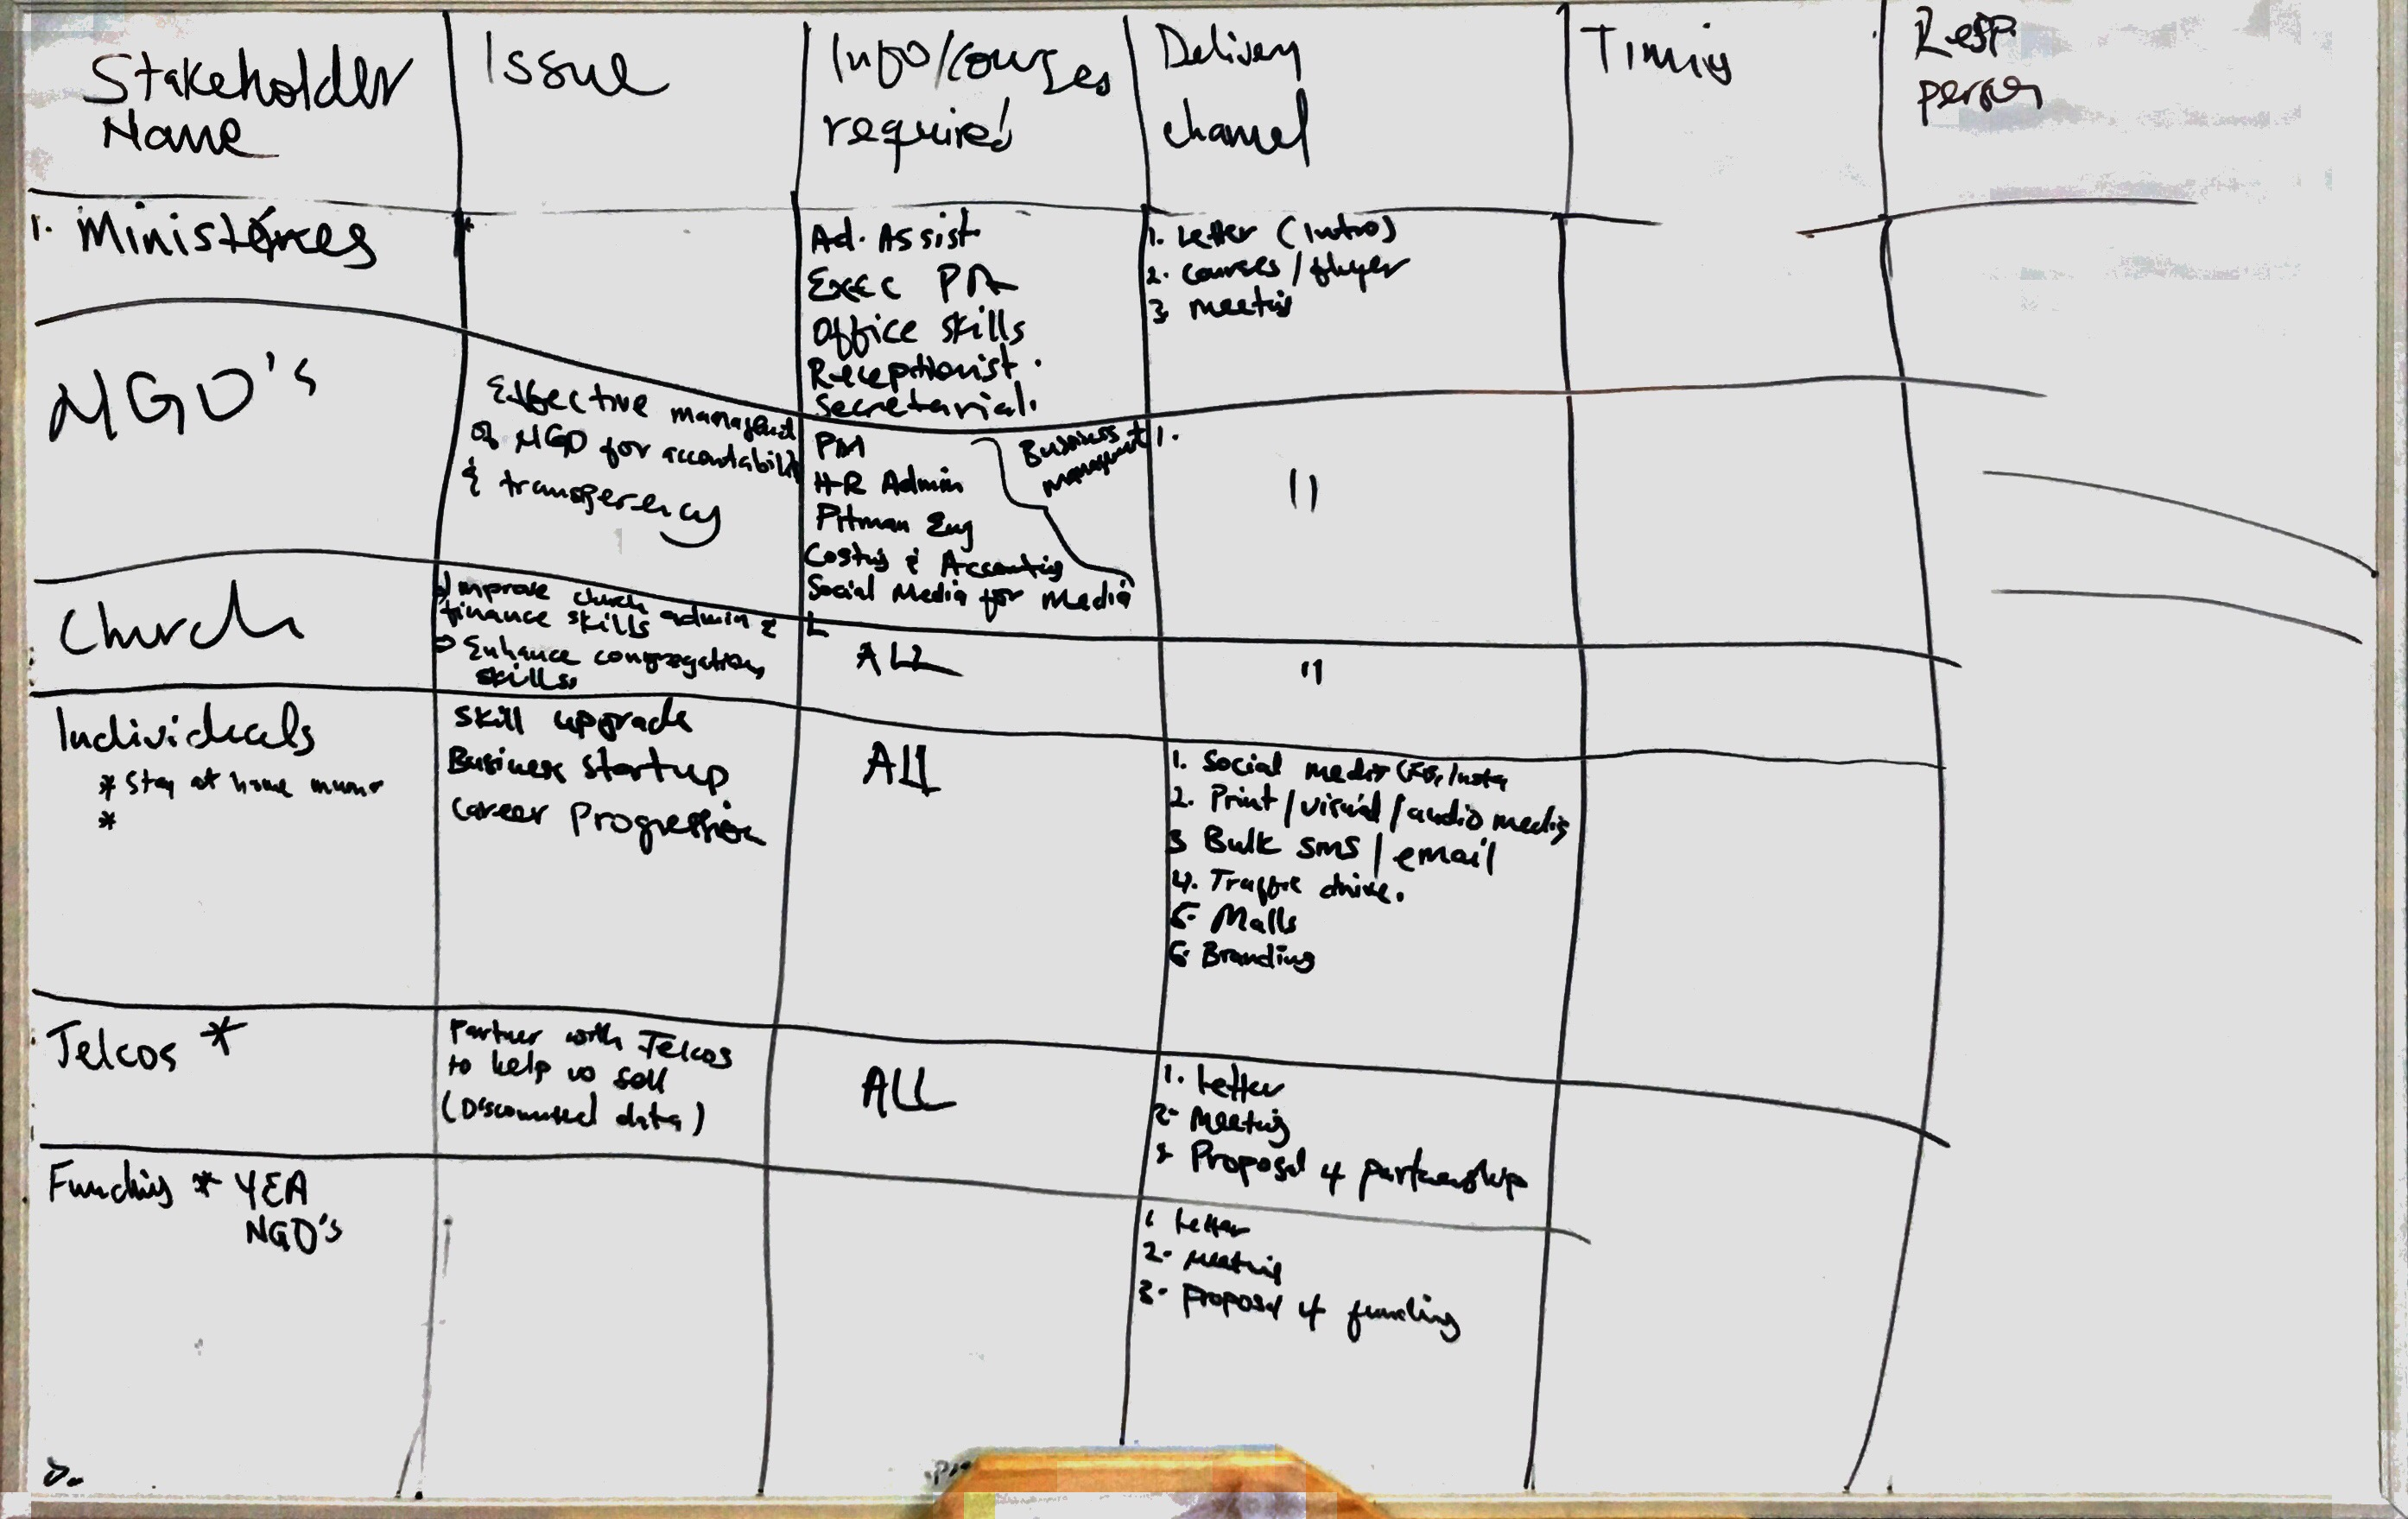 Stakeholder Name
Issue
Info/courses required
Delivery channel
Timing
Resp. person
1. Ministeries
*
Ad. Assist.
Exec PA
Office skills
Receptionist.
Secretarial.
1. Letter (Intro)
2. courses/flyer
3. meeting
NGO's
Effective managment
of NGO for accountability
& transperency
PM
HR Admin
Pitman Eng
Costing & Accounting
Social Media for Media
Business
management
1.
11
Church
Improve church admin &
finance skills
Enhance congregation
skills.
ALL
11
Individuals
* Stay at home mums
*
Skill upgrade
Business startup
Career Progression
ALL
1. Social media (FB, Insta,
2. Print/visual/audio media
3 Bulk sms/email
4. Traffic drive.
5. Malls
6. Branding
Telcos *
Partner with Telcos
to help us sell
(Discounted data)
ALL
1. Letter
2. Meeting
3 Proposal 4 partnership
Funding * YEA
NGO's
1 Letter
2. meeting
3. Proposal 4 funding